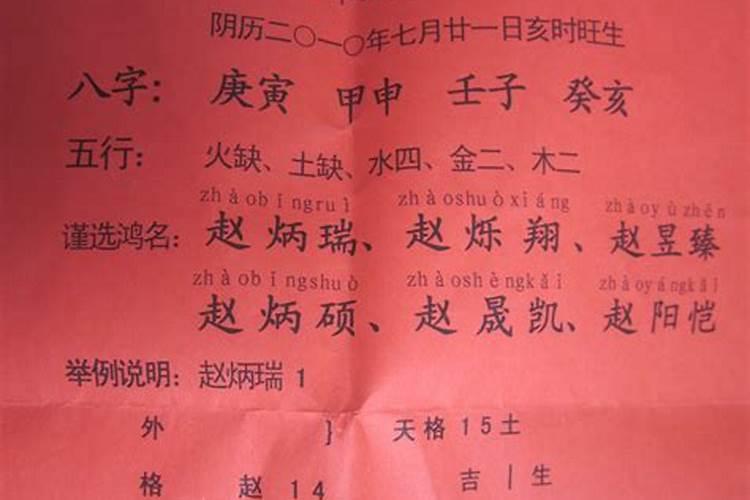 阴历二〇一〇年七月廿一日亥时旺生
八字：庚寅 甲申 壬子 癸亥
五行：火缺、土缺、水四、金二、木二
zhàobǐngruì zhàoshuòxiáng zhàoyùzhēn
谨选鸿名：赵炳瑞、赵烁翔、赵昱臻
zhàobǐngshuò zhàoshèngkǎi zhàoyángkǎi
赵炳硕、赵晟凯、赵阳恺
举例说明：赵炳瑞 1
外 } 天格 15土
格 赵 14 吉 | 生